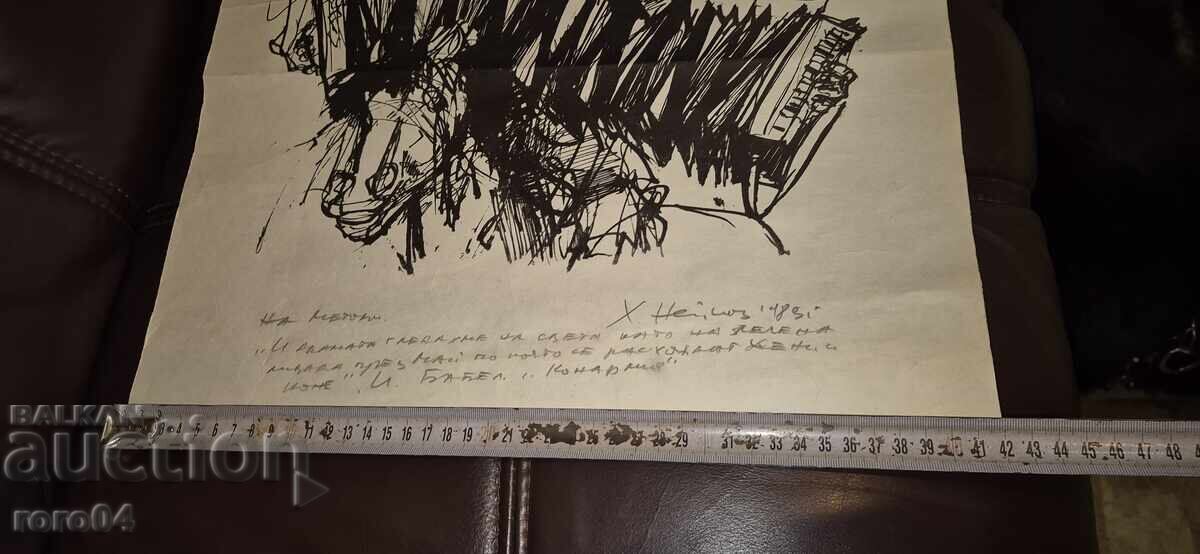 На Методи.
Х Нейков '83г
"И двамата гледахме на света като на зелена
ливада през май по която се разхождат жени и
коне" И. Бабел "Конармия"
BALKAN
auction
roro04
3 4 5 6 7 8 9 10 11 12 13 14 15 16 17 18 19 21 22 26 28 29 31 32 33 34 35 36 37 38 39 41 42 43 44 45 46 47 48